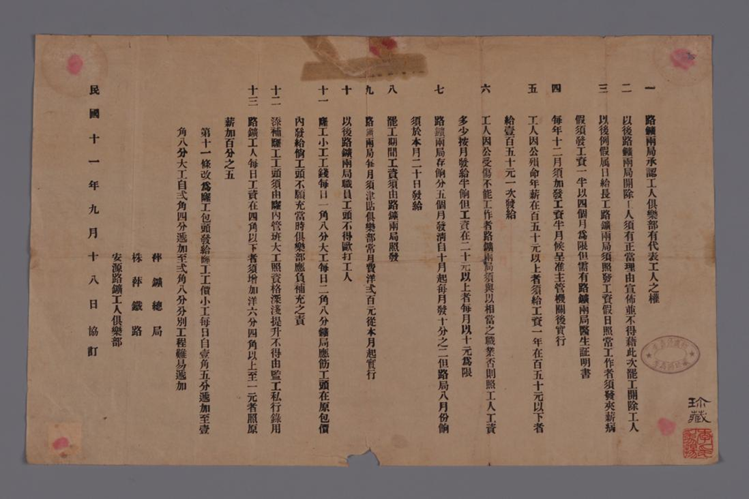 一　路鑛兩局承認工人俱樂部有代表工人之權
二　以後路鑛兩局開除工人須有正當理由宣佈並不得藉此次罷工開除工人
三　以後例假屬日給長工路鑛兩局須照發工資假日照當工作者須發夾薪病
假須發工資一半以四個月爲限但需有路鑛兩局醫生証明書
四　每年十二月須加發工資半月候呈准主管機關後實行
五　工人因公殞命年薪在百五十元以上者須給工資一年在百五十元以下者
給壹百五十元一次發給
六　工人因公受傷不能工作者路鑛兩局須與以相當之職業否則照工人工資
多少按月發給半餉但工資在二十元以上者每月以十元爲限
七　路鑛兩局存餉分五個月發清自十月起每月發十分之二但路局八月份餉
須於本月二十日發給
八　罷工期間工資須由路鑛兩局照發
九　路鑛兩局每月須津貼俱樂部常月費洋弍百元從本月起實行
十　以後路鑛兩局職員工頭不得歐打工人
十一　窿工小工工錢每日一角八分大工每日二角八分鑛局應飭工頭在原包價
內發給倘工頭不願充當時俱樂部應負補充之責
十二　添補窿工工頭須由窿內管班大工照資格深淺提升不得由監工私行錄用
十三　路鑛工人每日工資在四角以下者須增加洋六分四角以上至一元者照原
薪加百分之五
第十一條改爲窿工包頭發給窿工工價小工每日自壹角五分遞加至壹
角八分大工自弍角四分遞加至弍角八分分別工程難易遞加
萍鑛總局
株萍鐵路
安源路鑛工人俱樂部
民國十一年九月十八日協訂
珍藏